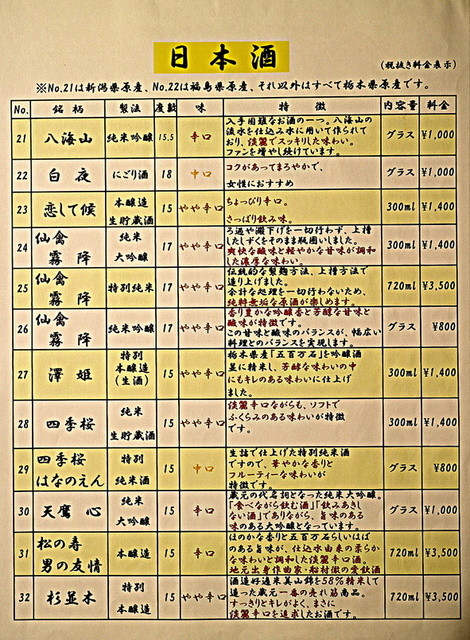 日本酒
(税抜き料金表示)
※No.21は新潟県原産、No.22は福島県原産、それ以外はすべて栃木県原産です。
No. 銘柄 製法 度数 味 特徴 内容量 料金
21 八海山 純米吟醸 15.5 辛口 グラス ¥1,000
入手困難なお酒の一つ。八海山の
流水を仕込み水に用いて作られて
おり、淡麗でスッキリした味わい。
ファンを増やし続けています。
22 白夜 にごり酒 18 中口 グラス ¥1,000
コクがあってまろやかで、
女性におすすめ
23 恋して候 本醸造 生貯蔵酒 15 やや辛口 300ml ¥1,400
ちょっぴり辛口。
さっぱり飲み味。
24 仙禽 霧降 純米 大吟醸 17 やや辛口 300ml ¥1,400
ろ過や瀝下げを一切行わず、上槽
したしずくをそのまま瓶囲いしました。
爽快な酸味と軽やかな甘味が調和
した濃厚な味わい。
25 仙禽 霧降 特別純米 17 やや辛口 720ml ¥3,500
伝統的な製麹方法、上槽方法で
造り上げました。
余計な処理を一切行わないため、
純粋無垢な原酒が楽しめます。
26 仙禽 霧降 純米吟醸 17 やや辛口 グラス ¥800
香り豊かな吟醸香と芳醇な甘味と
酸味が特徴です。
この甘味と酸味のバランスが、幅広い
料理とのバランスを実現します。
27 澤姫 特別 本醸造 (生酒) 15 やや辛口 300ml ¥1,400
栃木県産「五百万石」を吟醸酒
並に精米し、芳醇な味わいの中
にもキレのある味わいに仕上げ
ました。
28 四季桜 純米 生貯蔵酒 15 やや辛口 300ml ¥1,400
淡麗辛口ながらも、ソフトで
ふくらみのある味わいが特徴
です。
29 四季桜 はなのえん 特別 純米酒 15 中口 グラス ¥800
生詰で仕上げた特別純米酒
ですので、華やかな香りと
フルーティーな味わいが
特徴です。
30 天鷹 心 純米 大吟醸 15 辛口 グラス ¥1,000
蔵元の代名詞となった純米大吟醸。
「食べながら飲む酒」「飲みあきし
ない酒」でありながら、旨味のある
味のある大吟醸となっています。
31 松の寿 男の友情 本醸造 15 辛口 720ml ¥3,500
ほのかな香りと五百万石らしいはば
のある旨味が、仕込水由来の柔らか
な味わいと調和した淡麗辛口酒。
地元出身作曲家・船村徹の愛飲酒
32 杉並木 特別 本醸造 15 やや辛口 720ml ¥3,500
酒造好適米美山錦を58%精米して
造った蔵元一番の売れ筋商品。
すっきりとキレがよく、まさに
淡麗辛口を追求したお酒です。